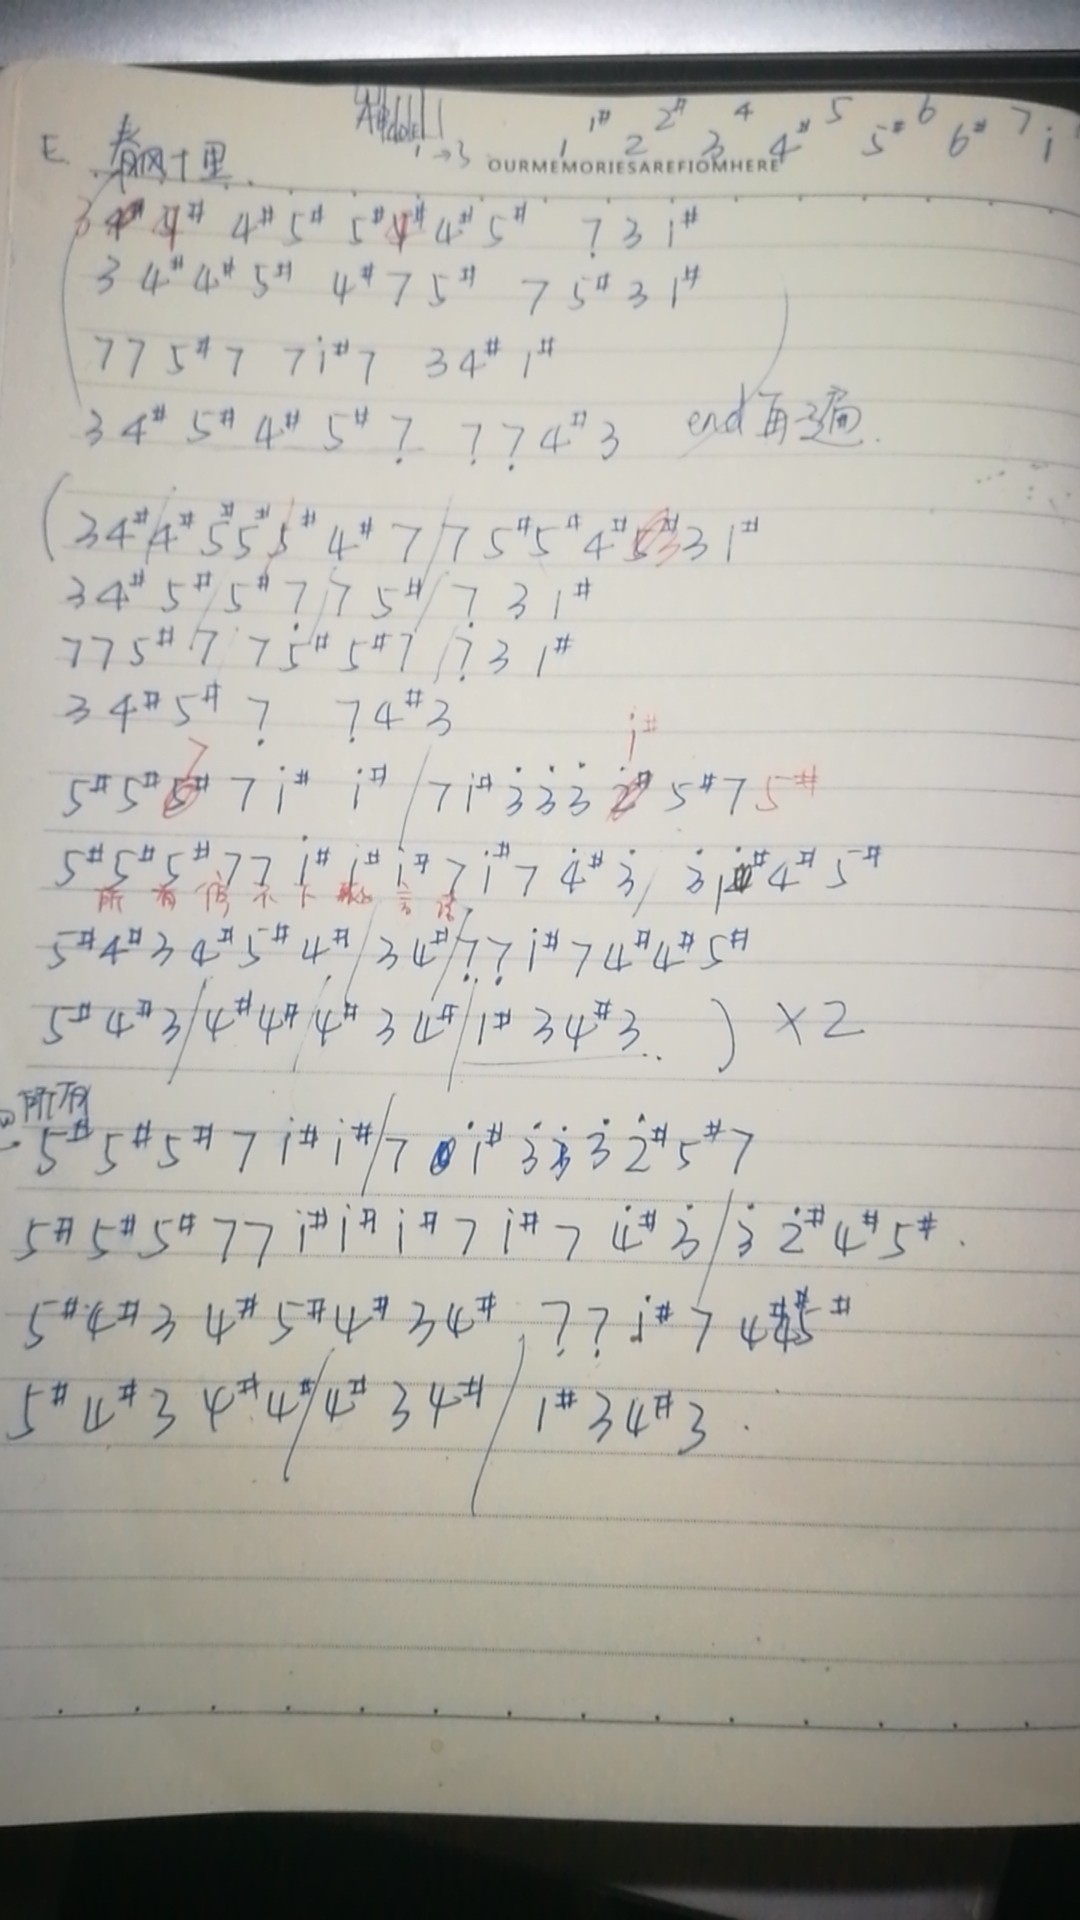 1# 2# 4 5 6 7 i
1 → 3 1 2 3 4# 5# 6#
E. 春风十里 OURMEMORIESAREFIOMHERE
3 4# 4# 5# 5# 4# 5# 7̣ 3 1#
3 4# 4# 5# 4# 7 5# 7 5# 3 1#
7 7 5# 7 7 i# 7 3 4# 1#
3 4# 5# 4# 5# 7̣ 7̣ 7̣ 4# 3 end 再一遍.
( 3 4# / 4# 5# 5# / 5# 4# 7 / 7 5# 5# 4# 3 3 1#
3 4# 5# / 5# 7 / 7 5# / 7̣ 3 1#
7 7 5# / 7 7 5̇# 5# 7 / 7̣ 3 1#
3 4# 5# 7̣ 7 4# 3
7 i#
5# 5# 7 i# i# / 7 i# 3̇ 3̇ 3̇ 5# 7 5#
5# 5# 5# 7 7 i# i# i# 7 i# 7 4̇# 3̇ / 3̇ 4# 5#
所 有 停 不 下 言
5# 4# 3 4# 5# 4# / 3 4# / 7̣ 7̣ i# 7 4# 4# 5#
5# 4# 3 / 4# 4# / 4# 3 4# / 1# 3 4# 3 . . ) × 2
所有
5# 5# 5# 7 i# i# / 7 i# 3̇ 3̇ 3̇ 2̇# 5# 7
5# 5# 5# 7 7 i# i# i# 7 i# 7 4̇# 3̇ / 3̇ 2̇# 4# 5# .
5# 4# 3 4# 5# 4# 3 4# 7̣ 7̣ i# 7 4# 4# 5#
5# 4# 3 4# 4# / 4# 3 4# / 1# 3 4# 3 .